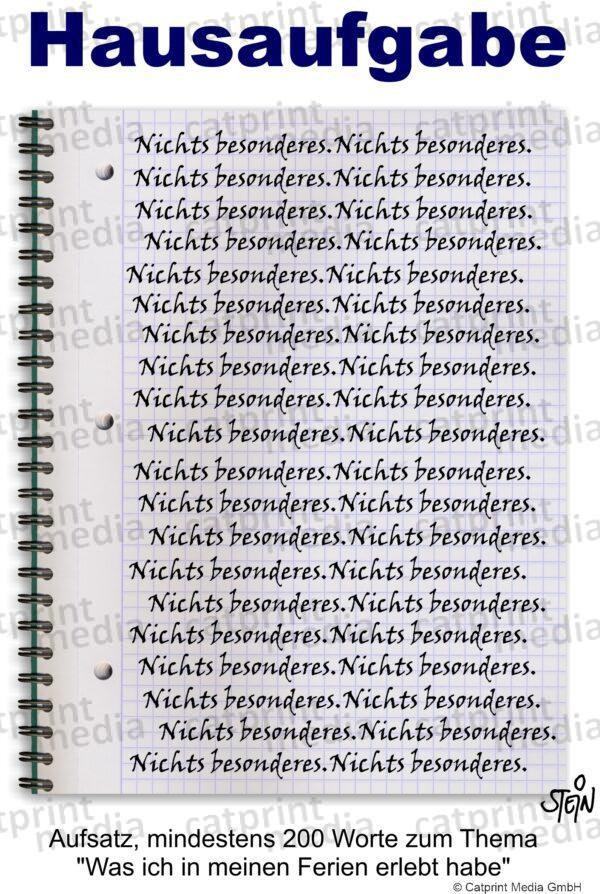 Hausaufgabe
Nichts besonderes. Nichts besonderes.
Nichts besonderes. Nichts besonderes.
Nichts besonderes. Nichts besonderes.
Nichts besonderes. Nichts besonderes.
Nichts besonderes. Nichts besonderes.
Nichts besonderes. Nichts besonderes.
Nichts besonderes. Nichts besonderes.
Nichts besonderes. Nichts besonderes.
Nichts besonderes. Nichts besonderes.
Nichts besonderes. Nichts besonderes.
Nichts besonderes. Nichts besonderes.
Nichts besonderes. Nichts besonderes.
Nichts besonderes. Nichts besonderes.
Nichts besonderes. Nichts besonderes.
Nichts besonderes. Nichts besonderes.
Nichts besonderes. Nichts besonderes.
Nichts besonderes. Nichts besonderes.
Nichts besonderes. Nichts besonderes.
Nichts besonderes. Nichts besonderes.
Nichts besonderes. Nichts besonderes.
STEIN
Aufsatz, mindestens 200 Worte zum Thema
"Was ich in meinen Ferien erlebt habe"
© Catprint Media GmbH
catprint
media